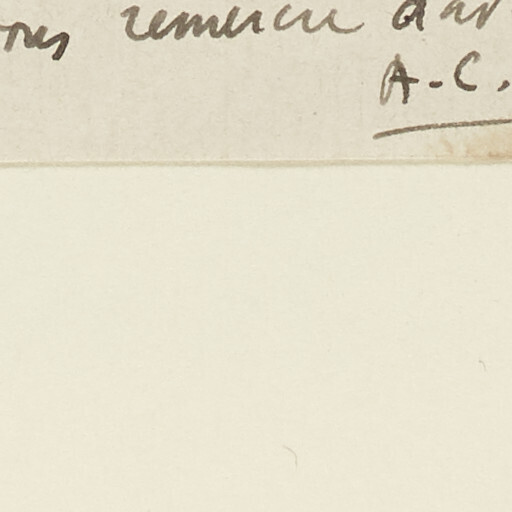 remercie d'av
A.C.